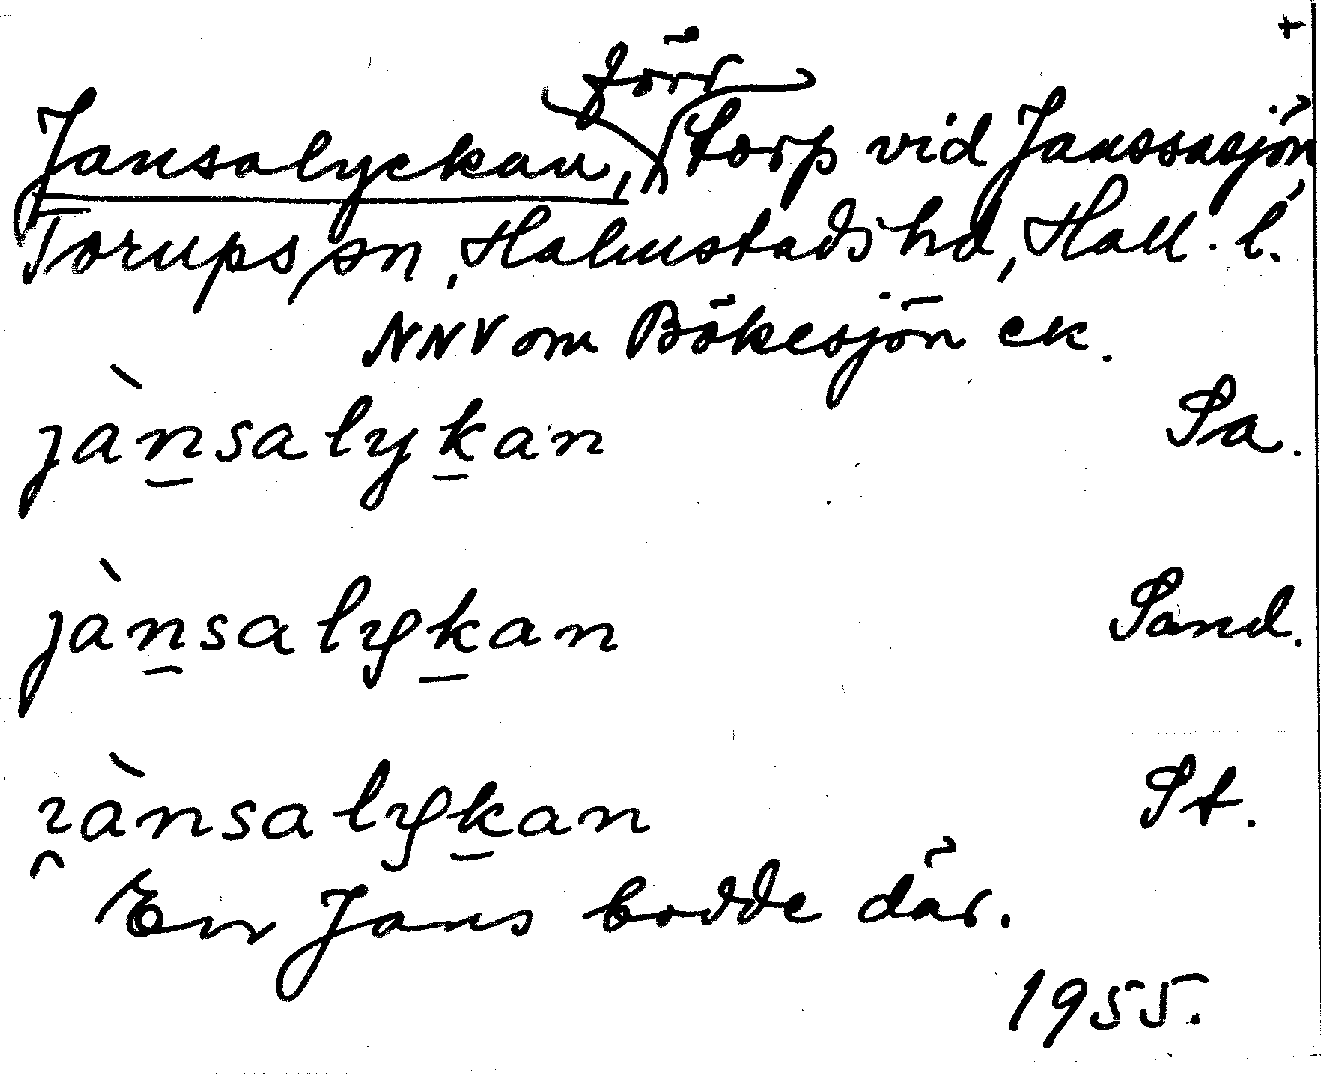 +
förr
Jansalyckan, torp vid Janssasjön
Torups sn, Halmstads hd, Hall. l.
NNV om Bökesjön ek.
jànsalykan Sa.
jànsalykan Sand.
ɿànsalykan St.
En Jans bodde där.
1955.